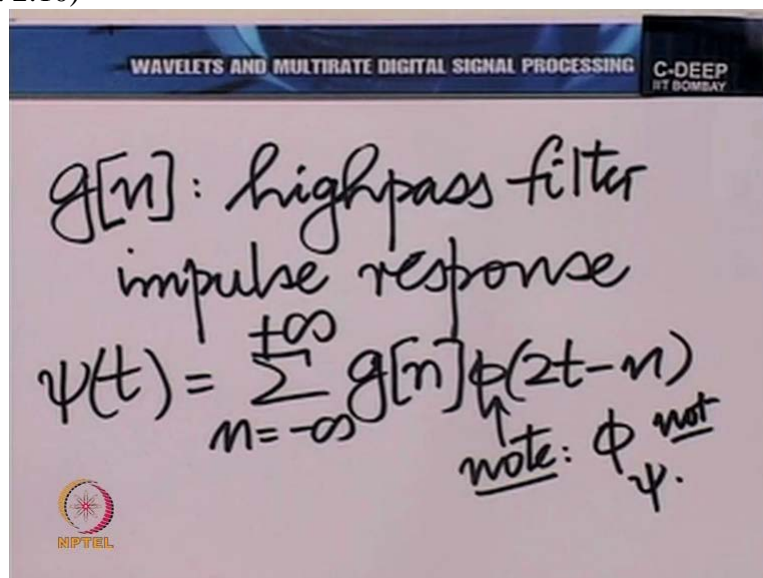 2:10)
WAVELETS AND MULTIRATE DIGITAL SIGNAL PROCESSING
C-DEEP
IIT BOMBAY
g[n]: highpass filter
impulse response
ψ(t) = Σ_{n=-∞}^{+∞} g[n]ϕ(2t-n)
↑
note: ϕ not
ψ.
NPTEL